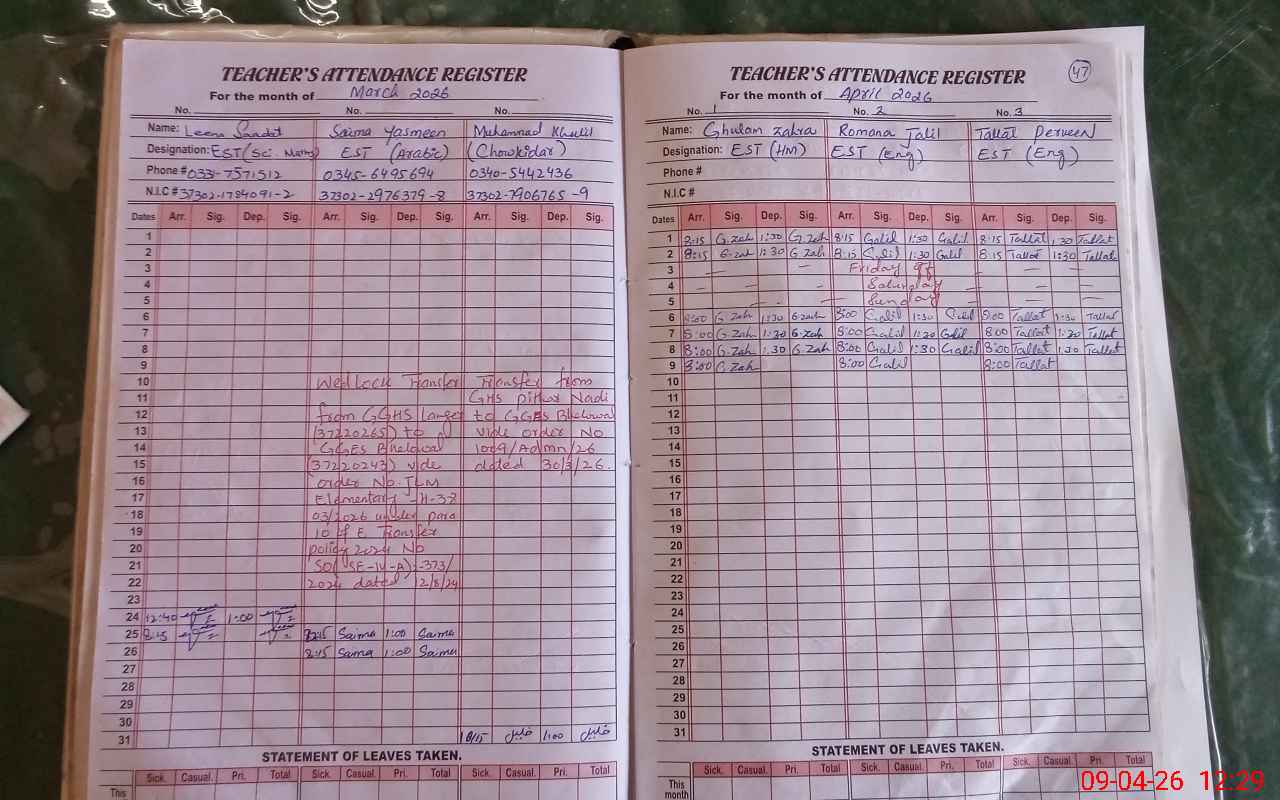 TEACHER'S ATTENDANCE REGISTER
For the month of March 2026
No. No. No.
Name: Leena Saadat Saima Yasmeen Muhammad Khalil
Designation: EST (Sci. Maths) EST (Arabic) (Chowkidar)
Phone # 0331-7571512 0345-6495694 0340-5442436
N.I.C # 37302-1784091-2 37302-2976379-8 37302-7906765-9
Dates Arr. Sig. Dep. Sig. Arr. Sig. Dep. Sig. Arr. Sig. Dep. Sig.
1
2
3
4
5
6
7
8
9
10 Wedlock Transfer Transfer from
11 GHS Nadi
12 from GGHS to GGES Bhelowal
13 (37220265) to vide order No
14 GGES Bhelowal 1009/Admn/26
15 (37220243) vide dated 30/3/26.
16 order No.
17 Elementary -H-37
18 03/2026 under para
19 10 of E Transfer
20 policy 2024 No
21 SO( SE-IV-A) -373/
22 2024 dated 12/8/24
23
24 12:40 1:00
25 8:15 Saima 1:00 Saima
26 8:15 Saima 1:00 Saima
27
28
29
30
31 8/15 خلیل 1:00 خلیل
STATEMENT OF LEAVES TAKEN.
Sick. Casual. Pri. Total Sick. Casual. Pri. Total Sick. Casual. Pri. Total
This
TEACHER'S ATTENDANCE REGISTER 47
For the month of April 2026
No. 1 No. 2 No. 3
Name: Ghulam Zahra Romana Jalil Tallat Perveen
Designation: EST (HM) EST (Eng) EST (Eng)
Phone #
N.I.C #
Dates Arr. Sig. Dep. Sig. Arr. Sig. Dep. Sig. Arr. Sig. Dep. Sig.
1 8:15 G.Zah 1:30 G.Zah 8:15 Galil 1:30 Galil 8:15 Tallat 1:30 Tallat
2 8:15 G.Zah 1:30 G.Zah 8:15 Galil 1:30 Galil 8:15 Tallat 1:30 Tallat
3 Friday off
4 Saturday
5 Sunday
6 8:00 G.Zah 1:30 G.Zah 8:00 Galil 1:30 Galil 8:00 Tallat 1:30 Tallat
7 8:00 G.Zah 1:30 G.Zah 8:00 Galil 1:30 Galil 8:00 Tallat 1:30 Tallat
8 8:00 G.Zah 1:30 G.Zah 8:00 Galil 1:30 Galil 8:00 Tallat 1:30 Tallat
9 8:00 G.Zah 8:00 Galil 8:00 Tallat
10
11
12
13
14
15
16
17
18
19
20
21
22
23
24
25
26
27
28
29
30
31
STATEMENT OF LEAVES TAKEN.
Sick. Casual. Pri. Total Sick. Casual. Pri. Total Sick. Casual. Pri. Total
This
month
09-04-26 12:29